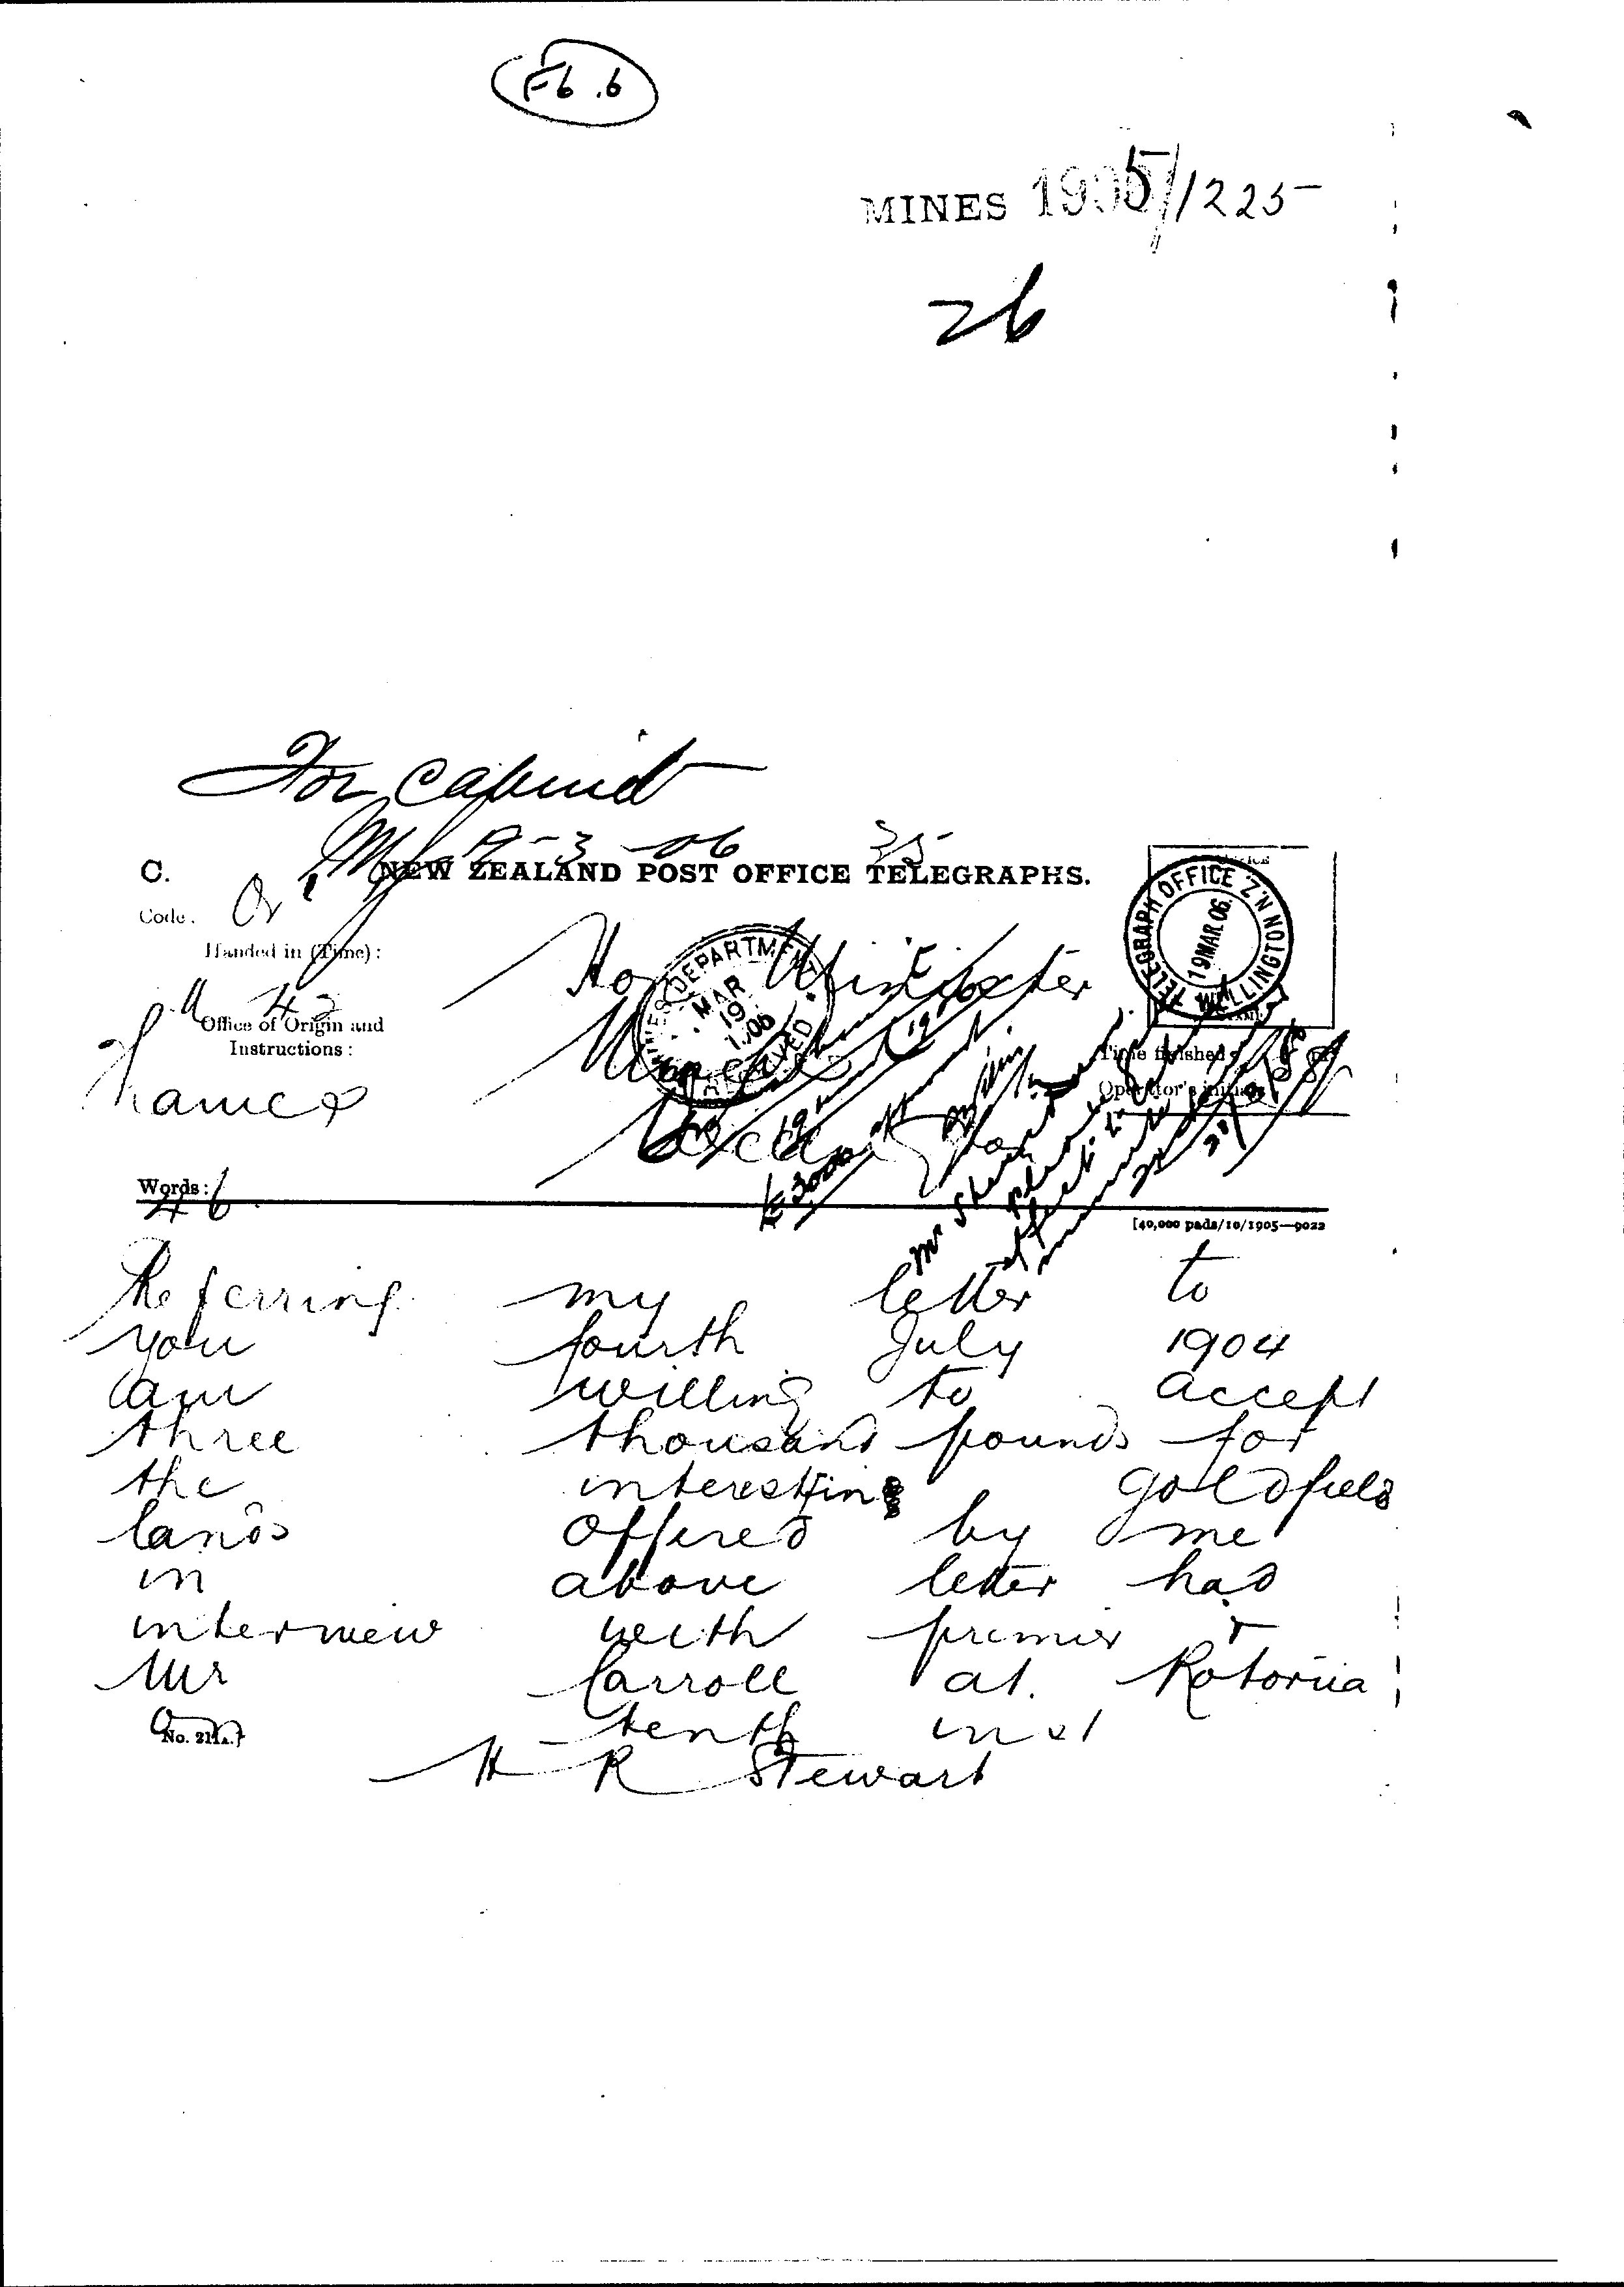 F6.6
MINES 1905/1225
26
For Cabinet
19-3-06 35
C. NEW ZEALAND POST OFFICE TELEGRAPHS.
Code.
Handed in (Time):
42
Office of Origin and
Instructions:
Thames
Hon Minister
Mines
MINES DEPARTMENT
MAR
19
1906
RECEIVED
TELEGRAPH OFFICE WELLINGTON N.Z.
19 MAR. 06.
Time finished:
Operator's initials
£3000
Mr
Words:
46
[40,000 pads/10/1905—9022
Referring my letter to
you fourth July 1904
am willing to accept
three thousand pounds for
the interest in goldfield
lands offered by me
in above letter had
interview with premier &
Mr Carroll at Rotorua
No. 21A.] tenth inst
H R Stewart